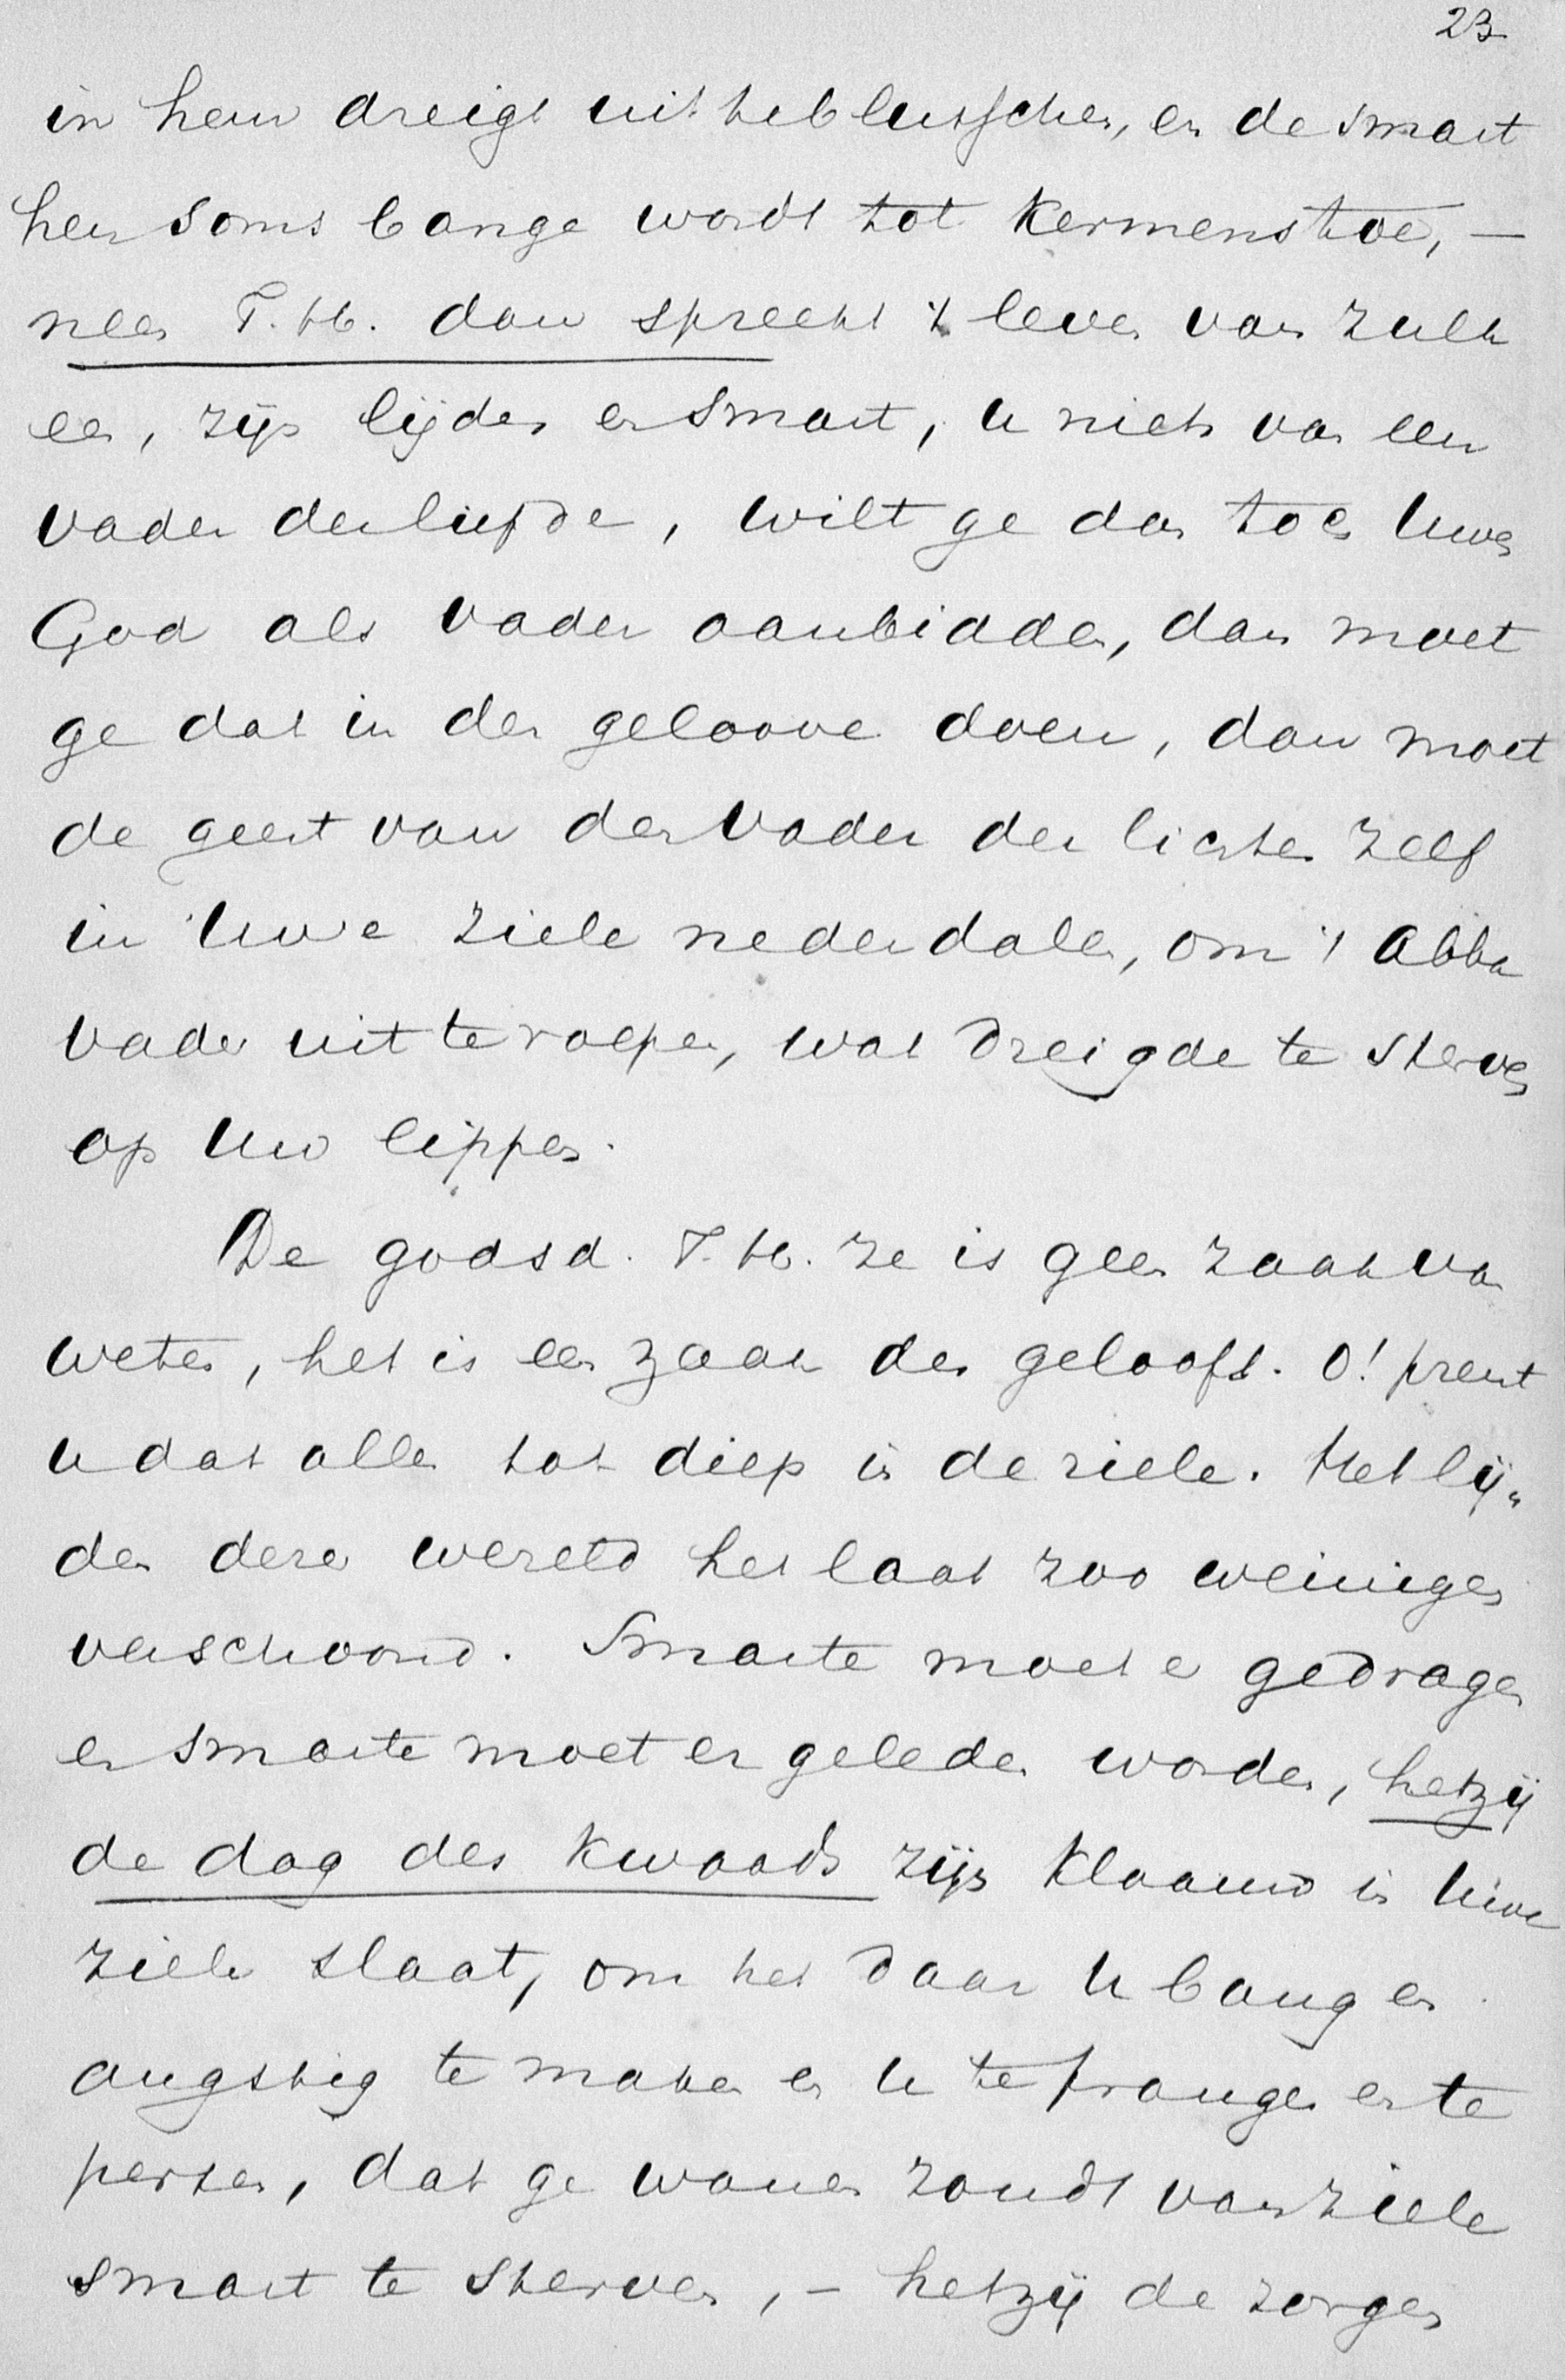 23
in hem dreigt uit te blusschen, en de smart
hem soms bange wordt tot kermens toe, —
neen T. H. dan spreekt 't leven van zulk
een, zijn lijden en smart, u niets van een
vader der liefde, wilt ge dan toch Uwen
God als vader aanbidden, dan moet
ge dat in den geloove doen, dan moet
de geest van den Vader der lichten zelf
in Uwe ziele nederdalen, om 't Abba
vader uit te roepen, wat dreigde te sterven
op Uw lippen.
De godsd. T. H. ze is geen zaak van
weten, het is een zaak des geloofs. O! prent
u dat allen tot diep in de ziele. Het lij„
den dezer wereld het laat zoo weinigen
verschoond. Smarte moet er gedragen
en smarte moet er geleden worden, hetzij
de dag des kwaads zijn klaauw in Uwe
ziele slaat, om het daar U bang en
angstig te maken en U te prangen en te
persen, dat ge wanen zoudt van ziele
smart te sterven, – hetzij de zorgen